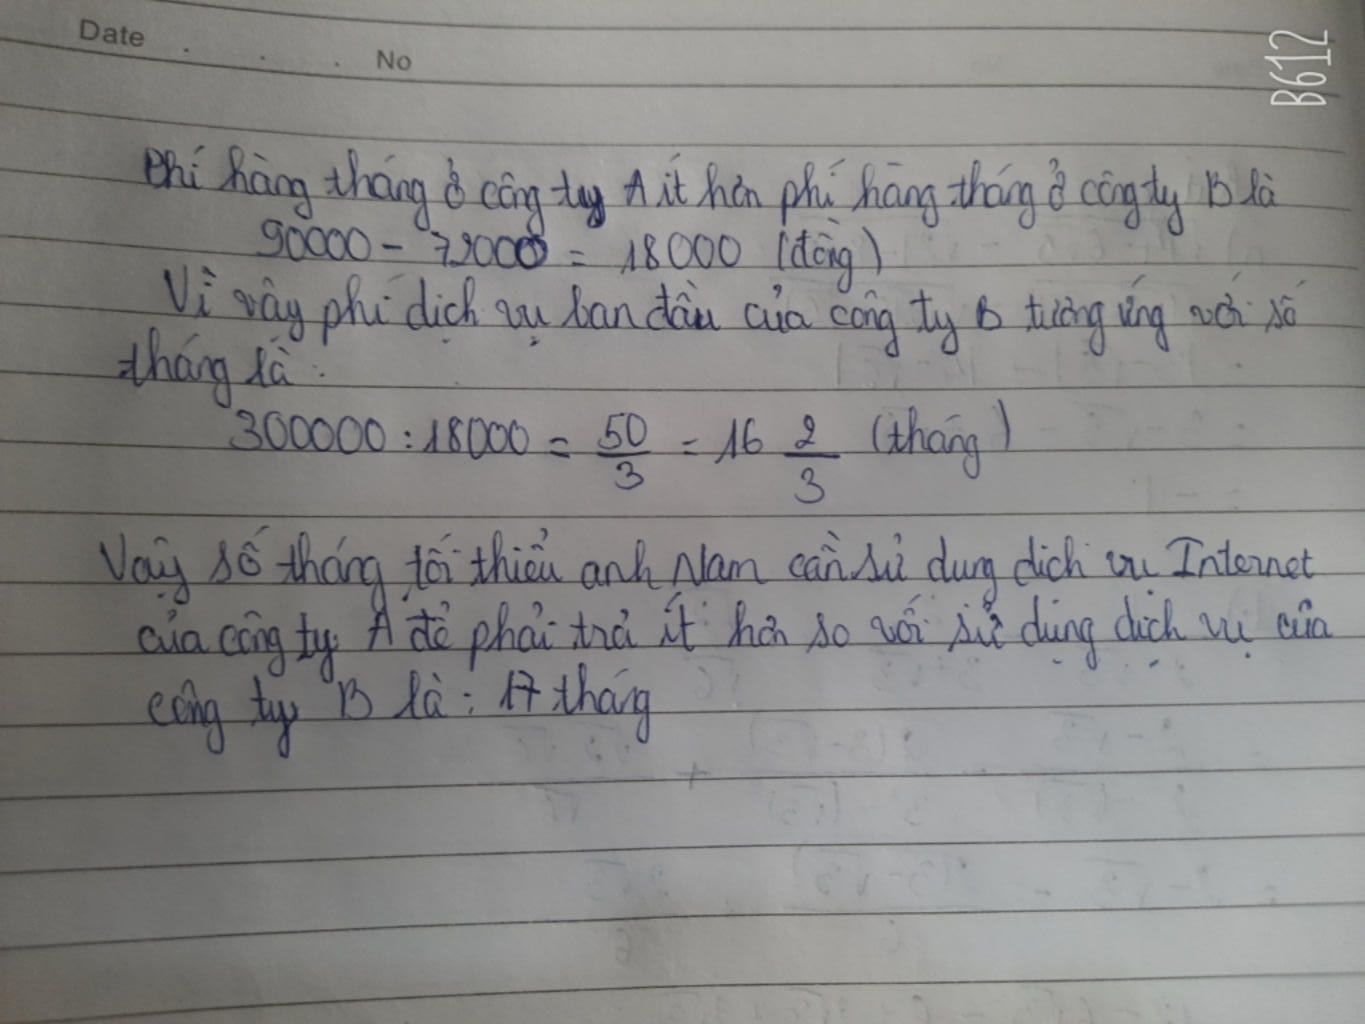 Date . . .
No
B612
Phí hàng tháng ở công ty A ít hơn phí hàng tháng ở công ty B là
90000 - 72000 = 18000 (đồng)
Vì vậy phí dịch vụ ban đầu của công ty B tương ứng với số
tháng là :
300000 : 18000 = 50/3 = 16 2/3 (tháng)
Vậy số tháng tối thiểu anh Nam cần sử dung dich vu Internet
của công ty A để phải trả ít hơn so với sử dụng dịch vụ của
công ty B là : 17 tháng